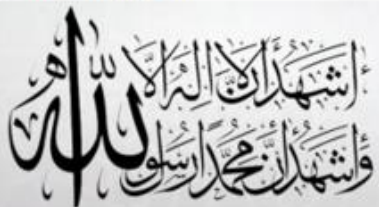 أشهد أن لا إله إلا الله
وأشهد أن محمدا رسول الله